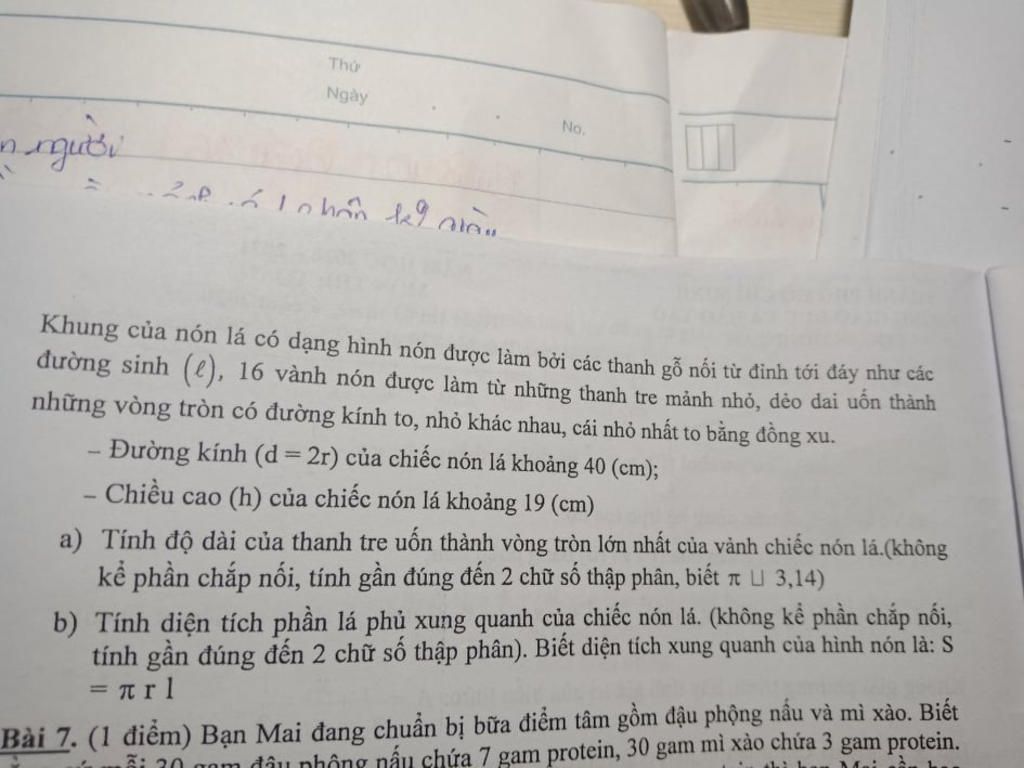 Thứ
Ngày
No.
người
Khung của nón lá có dạng hình nón được làm bởi các thanh gỗ nối từ đỉnh tới đáy như các
đường sinh (ℓ), 16 vành nón được làm từ những thanh tre mảnh nhỏ, dẻo dai uốn thành
những vòng tròn có đường kính to, nhỏ khác nhau, cái nhỏ nhất to bằng đồng xu.
– Đường kính (d = 2r) của chiếc nón lá khoảng 40 (cm);
– Chiều cao (h) của chiếc nón lá khoảng 19 (cm)
a) Tính độ dài của thanh tre uốn thành vòng tròn lớn nhất của vành chiếc nón lá.(không
kể phần chắp nối, tính gần đúng đến 2 chữ số thập phân, biết π ⊔ 3,14)
b) Tính diện tích phần lá phủ xung quanh của chiếc nón lá. (không kể phần chắp nối,
tính gần đúng đến 2 chữ số thập phân). Biết diện tích xung quanh của hình nón là: S
= π r l
Bài 7. (1 điểm) Bạn Mai đang chuẩn bị bữa điểm tâm gồm đậu phộng nấu và mì xào. Biết
mỗi 30 gam đậu phộng nấu chứa 7 gam protein, 30 gam mì xào chứa 3 gam protein.